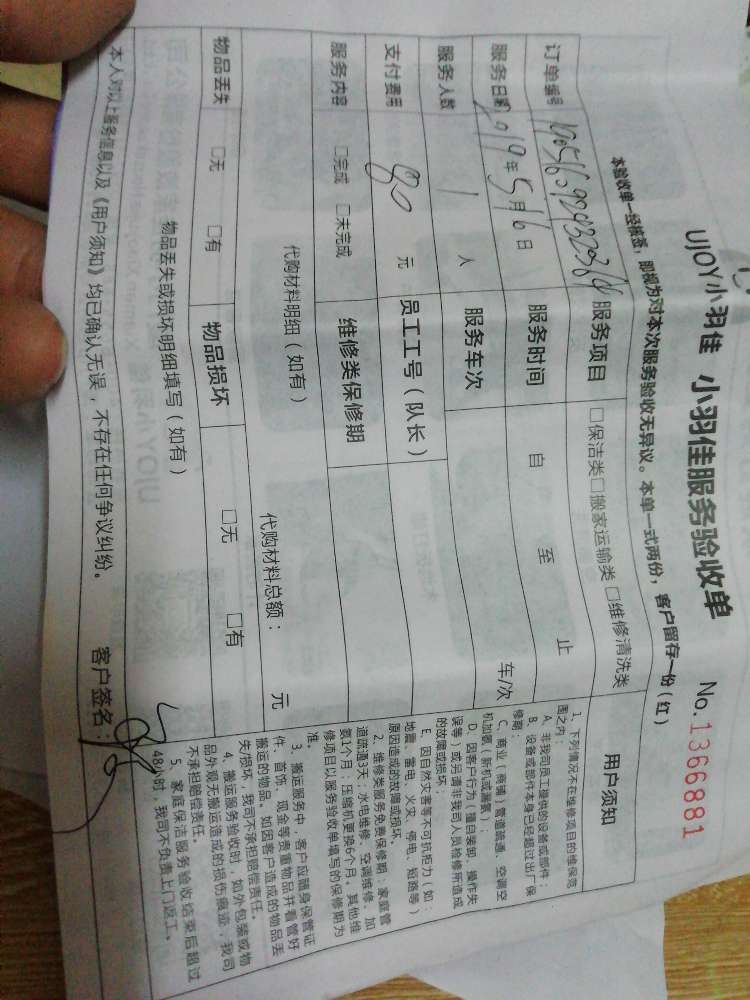 UJOY小羽佳 小羽佳服务验收单 No.1366881
本验收单一经核签，即视为对本次服务验收无异议。本单一式两份，客户留存一份（红）
订单编号 服务项目 □保洁类□搬家运输类□维修清洗类
服务日期 2019年5月6日 服务时间 自 至 止
服务人数 1 人 服务车次 车/次
支付费用 80 元 员工工号（队长）
服务内容 □完成 □未完成 维修类保修期
代购材料明细（如有） 代购材料总额： 元
物品丢失 □无 □有 物品损坏 □无 □有
物品丢失或损坏明细填写（如有）
本人对以上服务信息以及《用户须知》均已确认无误，不存在任何争议纠纷。 客户签名：
用户须知
1、下列情况不在维修项目的维保范
围之内：
A、非我司员工提供的设备或部件；
B、设备或部件本身已经超过出厂保
修期；
C、商业（商铺）管道疏通、空调空
机加氨（新机或漏氨）；
D、因客户行为（擅自装卸、操作失
误等）或另请非我司人员检修所造成
的故障或损坏；
E、因自然灾害等不可抗拒力（如：
地震、雷电、火灾、停电、短路等）
原因造成的故障或损坏。
2、维修类服务免费保修期：家庭管
道疏通3天；水电维修、空调维修、加
氨1个月；压缩机更换6个月。其他维
修项目以服务验收单填写的保修期为
准。
3、搬运服务中，客户应随身保管证
件、首饰、现金等贵重物品并看管好
搬运的物品。如因客户造成的物品丢
失/损坏，我司不承担赔偿责任。
4、搬运服务验收时，如外包装或物
品外观无搬运造成的损伤痕迹，我司
不承担赔偿责任。
5、家庭保洁服务验收结束后超过
48小时，我司不负责上门返工。